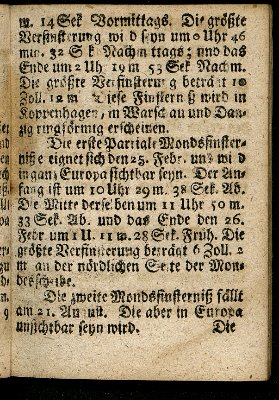 m. 14 Sek Vormittags. Die größte
Verfinsterung wi d seyn um 0 Uhr 46
min. 32 S k Nachm ttags; und das
Ende um 2 Uhr 19 m 53 Sek Nachm.
Die größte Verfinsterung beträgt 10
Zoll. 12 m Diese Finsterniß wird in
Koppenhagen, in Warschau und Dan-
zig ringförmig erscheinen.
Die erste Partiale Mondsfinster-
niß eignet sich den 25. Febr. und wi d
in ganz Europa sichtbar seyn. Der An-
fang ist um 10 Uhr 29 m. 38 Sek. Ab.
Die Mitte derselben um 11 Uhr 50 m.
33 Sek. Ab. und das Ende den 26.
Febr um 1 U. 11 m. 28 Sek. Früh. Die
größte Verfinsterung beträgt 6 Zoll. 2
m an der nördlichen Seite der Mon-
desscheibe.
Die zweite Mondsfinsterniß fällt
am 21. August. Die aber in Europa
unsichtbar seyn wird. Die